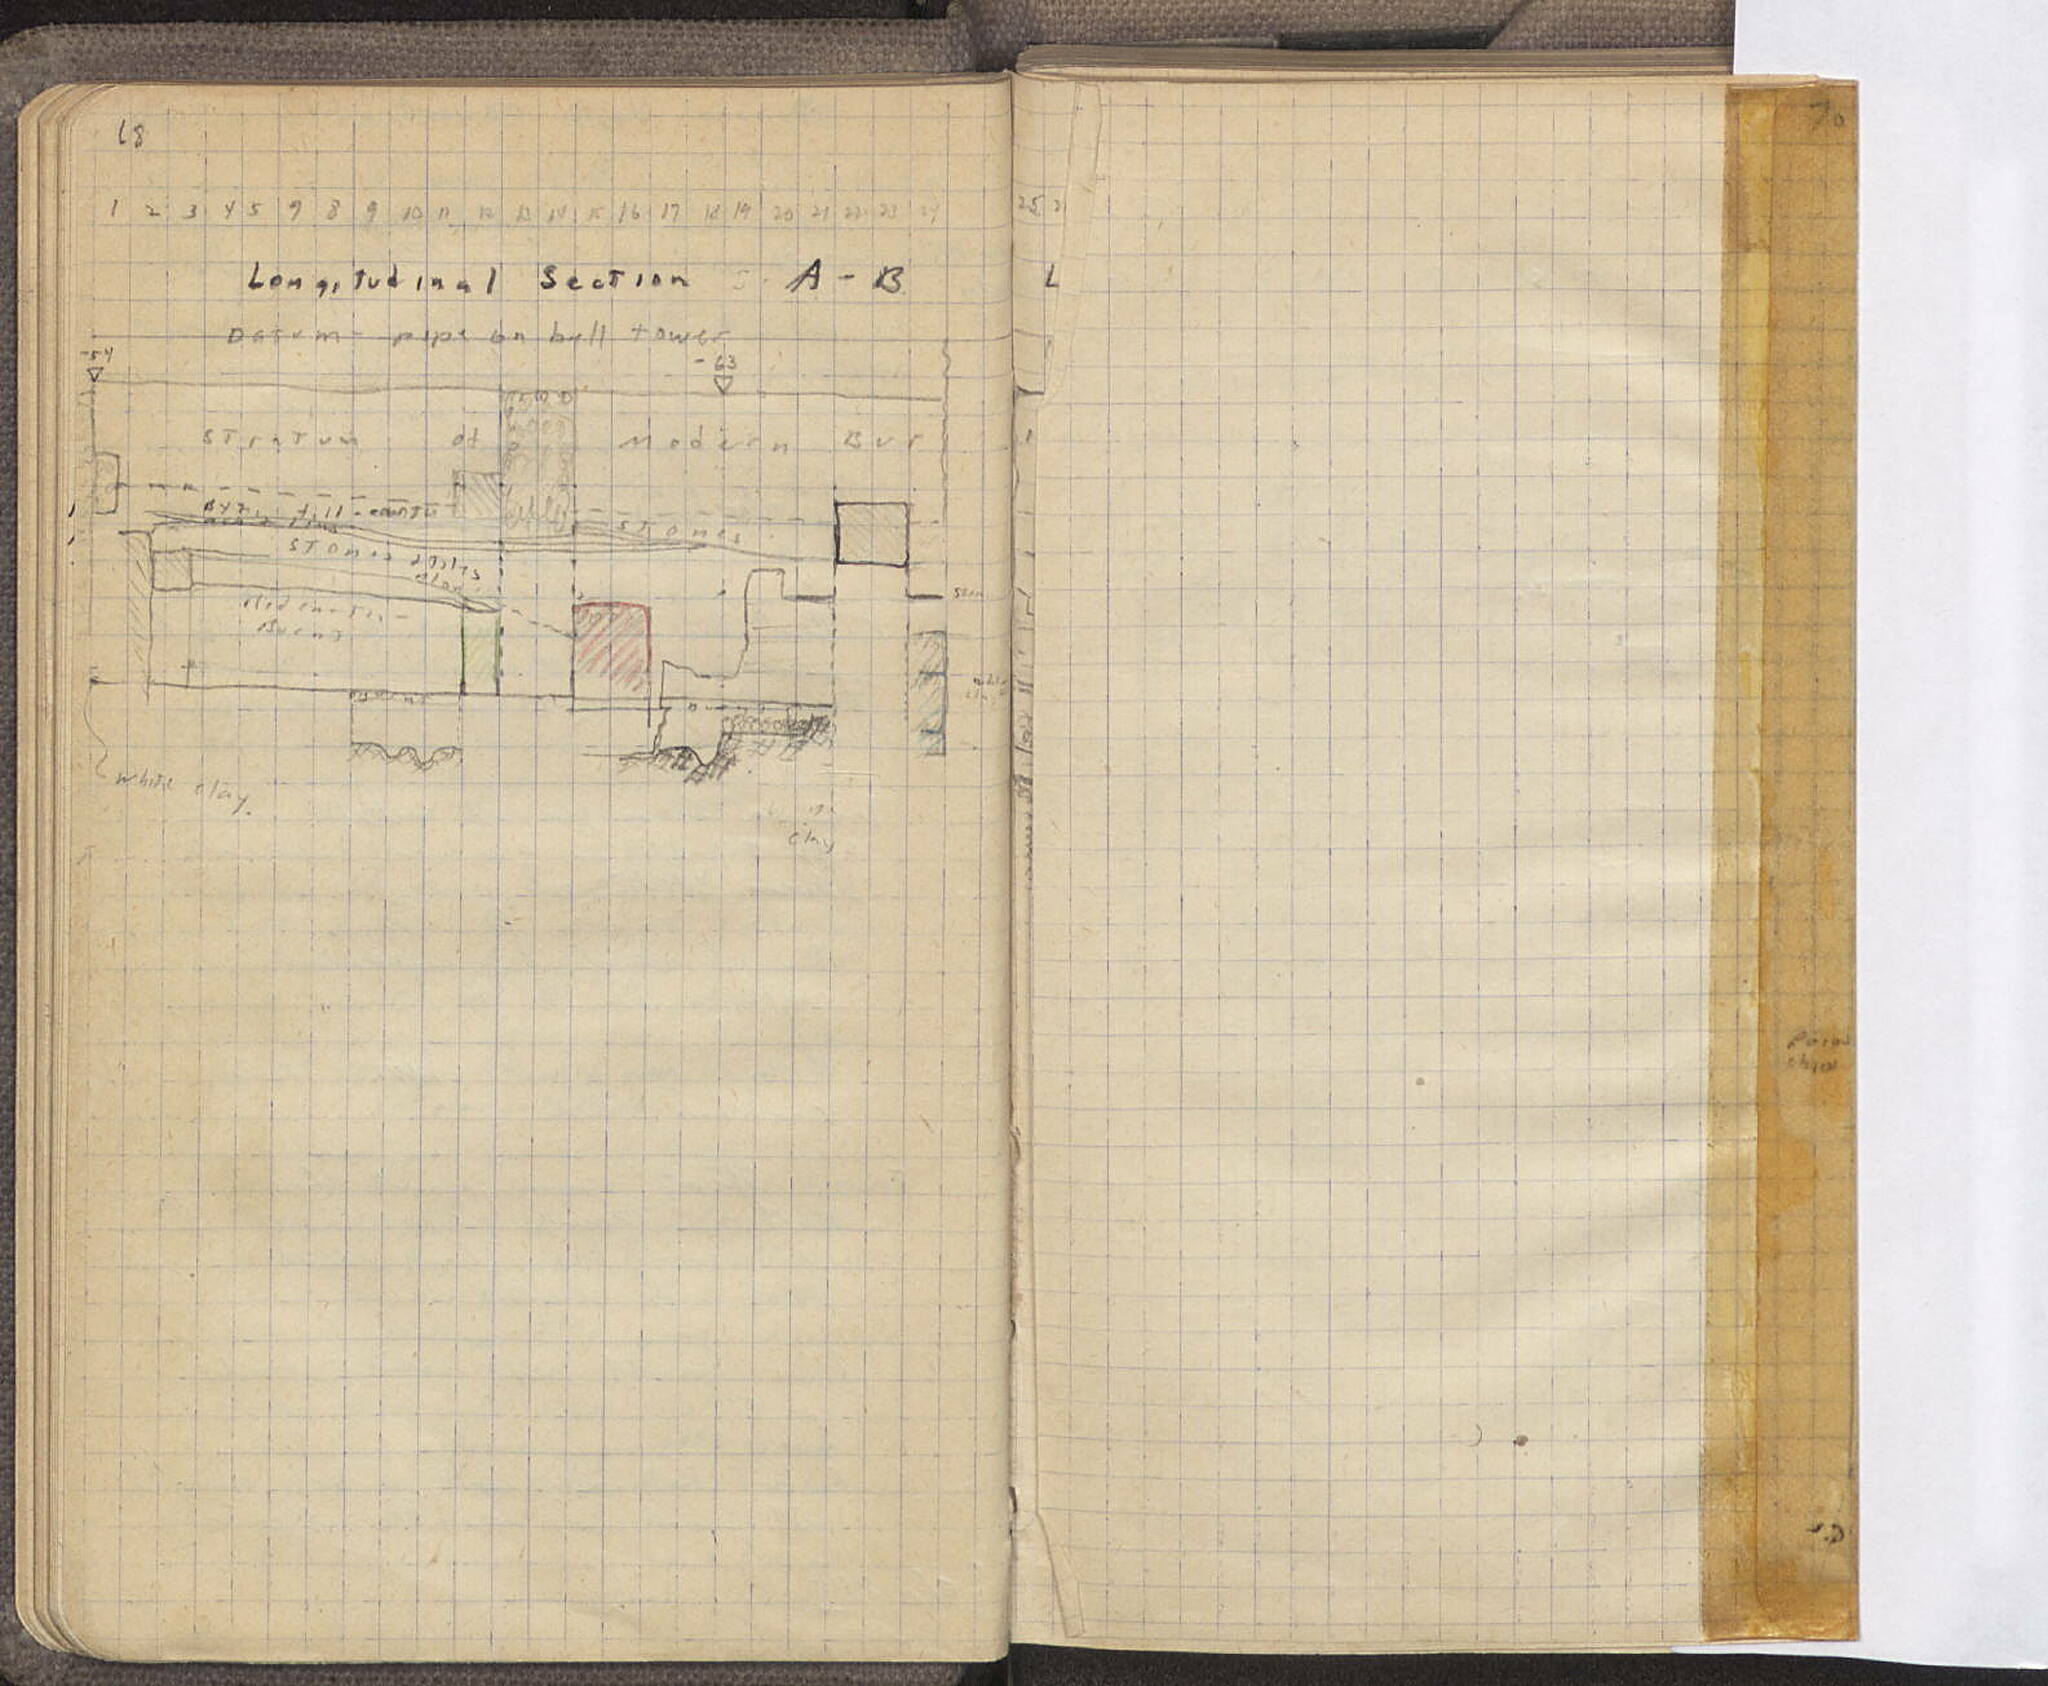 68
1 2 3 4 5 9 8 9 10 11 12 13 14 15 16 17 18 19 20 21 22 23 24
Longitudinal Section A - B
Datum - pipe on bell tower
-54
-63
Stratum of Modern Bur
Byz. fill - earth
Stones
Stones
white clay.
clay
25 2
L
70
Poros
chips